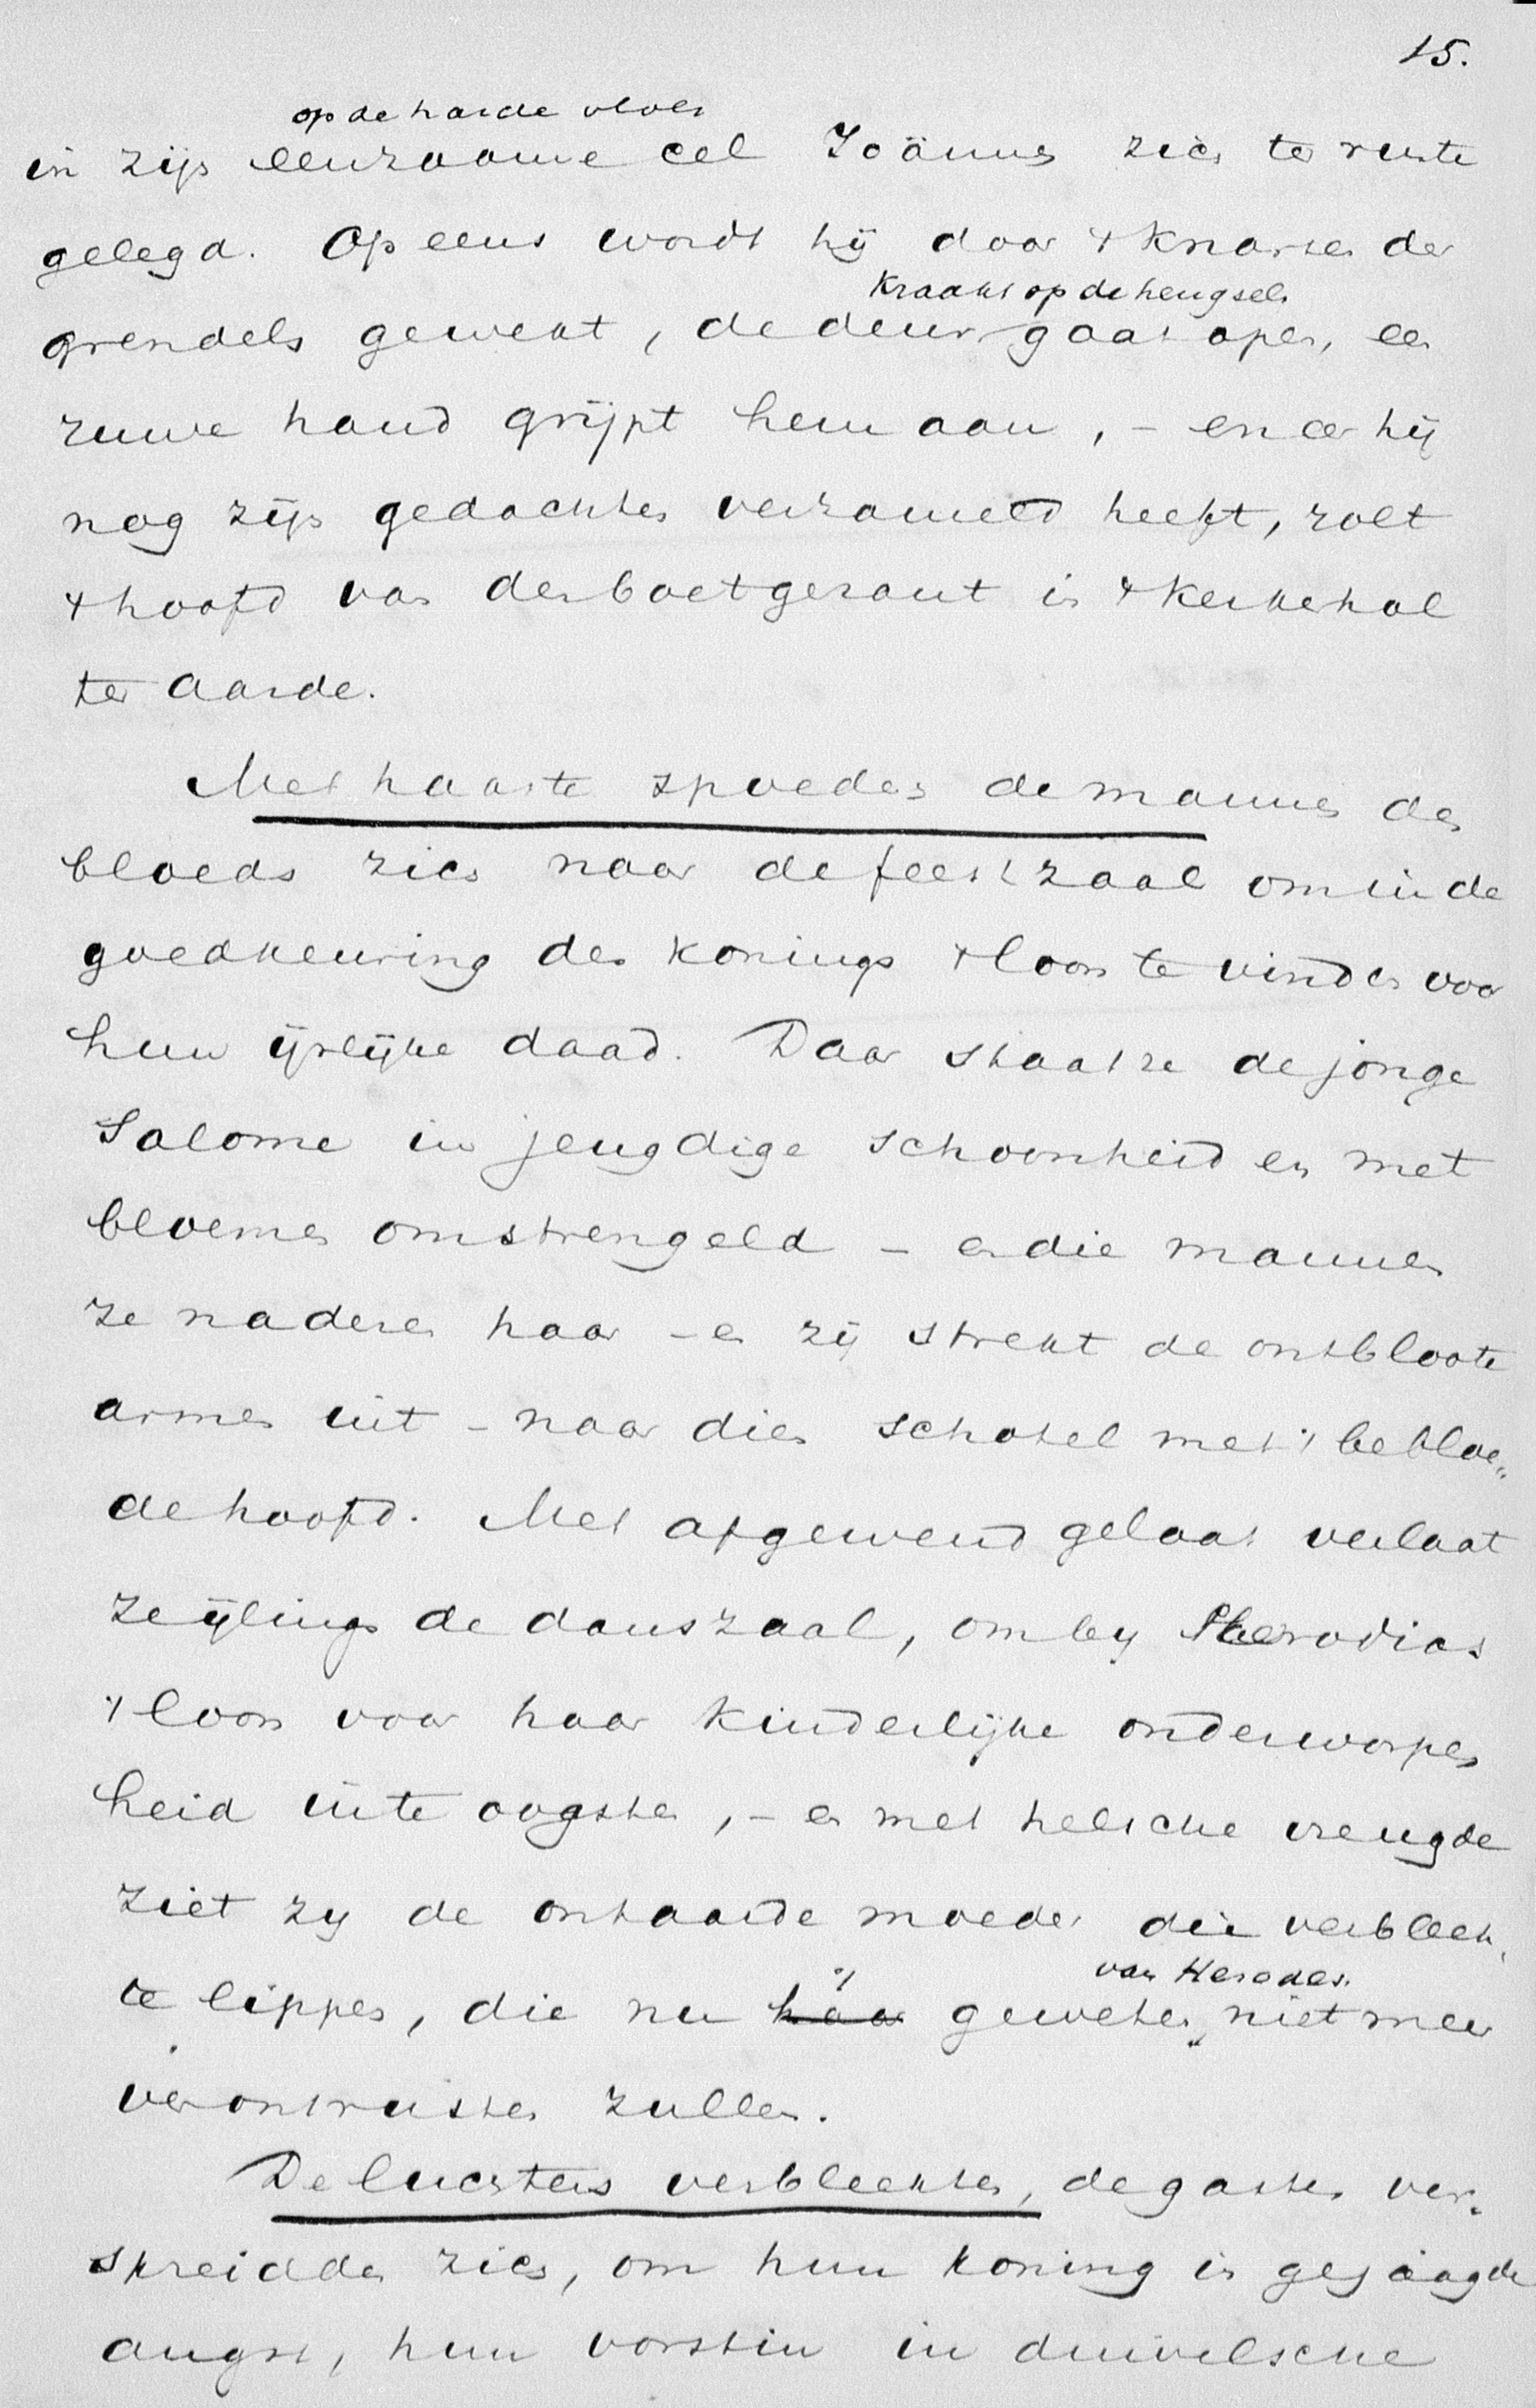 15.
op de harde vloer
in zijn eenzaame cel Joännes zich ter ruste
gelegd. Opeens wordt hij door 't knarsen der
kraakt op de hengsels
grendels gewekt, de deur gaat open, een
ruwe hand grijpt hem aan, - en eer hij
nog zijn gedachten verzameld heeft, rolt
't hoofd van den boetgezant in 't kerkerhol
ter aarde.
Met haaste spoeden de mannen des
bloeds zich naar de feestzaal om in de
goedkeuring des konings 't loon te vinden voor
hun ijselijke daad. Daar staat ze de jonge
Salome in jeugdige schoonheid en met
bloemen omstrengeld - en die mannen
ze naderen haar - en zij strekt de ontbloote
armen uit - naar dien schotel met 't bebloe„
de hoofd. Met afgewend gelaat verlaat
ze ijlings de danszaal, om by Herodias
't loon voor haar kinderlijke onderworpen
heid in te oogsten, - en met helsche vreugde
ziet zy de ontaarde moeder die verbleek„
van Herodes.
te lippen, die nu haar 't geweten niet meer
verontrusten zullen.
De luchters verbleekten, de gasten ver„
spreidden zich, om hun koning in gejaagde
angst, hun vorstin in duivelsche